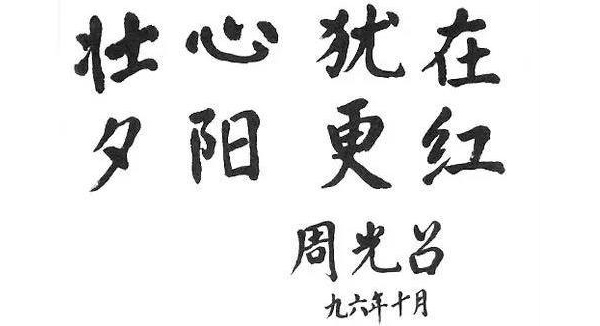 壮心犹在
夕阳更红
周光召
九六年十月